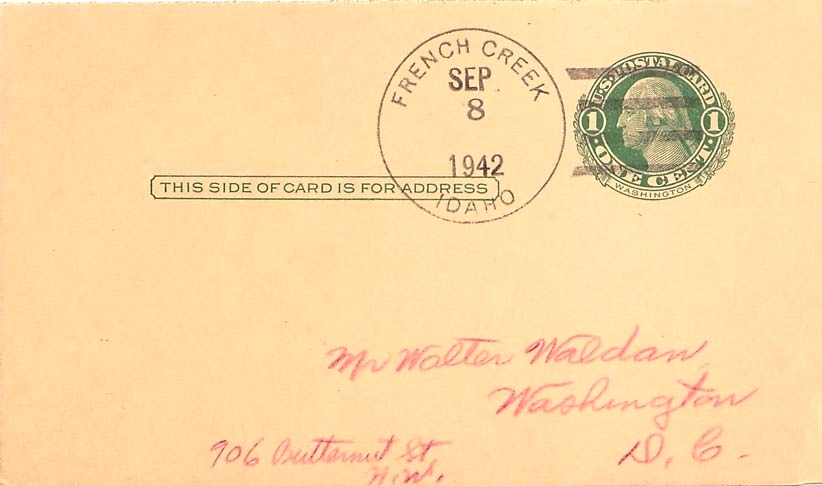 FRENCH CREEK
SEP
8
1942
IDAHO
U.S. POSTAL CARD
1 1
ONE CENT
WASHINGTON
THIS SIDE OF CARD IS FOR ADDRESS
Mr Walter Waldan
Washington
D. C.
906 Butternut St
N.W.